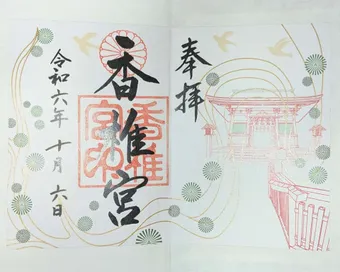 奉拝
香椎宮
香椎宮印
令和六年 十月 六日